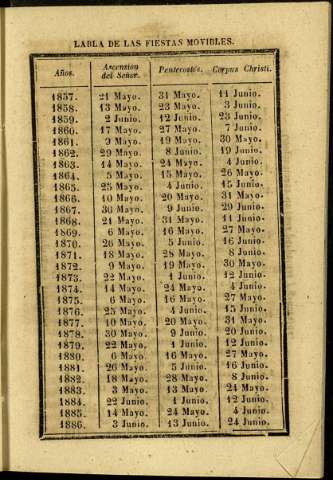 LABLA DE LAS FIESTAS MOVIBLES.
Años. Ascension del Señor. Pentecostés. Corpus Christi.
1857. 21 Mayo. 31 Mayo. 11 Junio.
1858. 13 Mayo. 23 Mayo. 3 Junio.
1859. 2 Junio. 12 Junio. 23 Junio.
1860. 17 Mayo. 27 Mayo. 7 Junio.
1861. 9 Mayo. 19 Mayo. 30 Mayo.
1862. 29 Mayo. 8 Junio. 19 Junio.
1863. 14 Mayo. 24 Mayo. 4 Junio.
1864. 5 Mayo. 15 Mayo. 26 Mayo.
1865. 25 Mayo. 4 Junio. 15 Junio.
1866. 10 Mayo. 20 Mayo. 31 Mayo.
1867. 30 Mayo. 9 Junio. 29 Junio.
1868. 21 Mayo. 31 Mayo. 11 Junio.
1869. 6 Mayo. 16 Mayo. 27 Mayo.
1870. 26 Mayo. 5 Junio. 16 Junio.
1871. 18 Mayo. 28 Mayo. 8 Junio.
1872. 9 Mayo. 19 Mayo. 30 Mayo.
1873. 22 Mayo. 1 Junio. 12 Junio.
1874. 14 Mayo. 24 Mayo. 4 Junio.
1875. 6 Mayo. 16 Mayo. 27 Mayo.
1876. 25 Mayo. 4 Junio. 15 Junio.
1877. 10 Mayo. 20 Mayo. 31 Mayo.
1878. 30 Mayo. 9 Junio. 20 Junio.
1879. 22 Mayo. 1 Junio. 12 Junio.
1880. 6 Mayo. 16 Mayo. 27 Mayo.
1881. 26 Mayo. 5 Junio. 16 Junio.
1882. 18 Mayo. 28 Mayo. 8 Junio.
1883. 3 Mayo. 13 Mayo. 24 Mayo.
1884. 22 Junio. 1 Junio. 12 Junio.
1885. 14 Mayo. 24 Mayo. 4 Junio.
1886. 3 Junio. 13 Junio. 24 Junio.